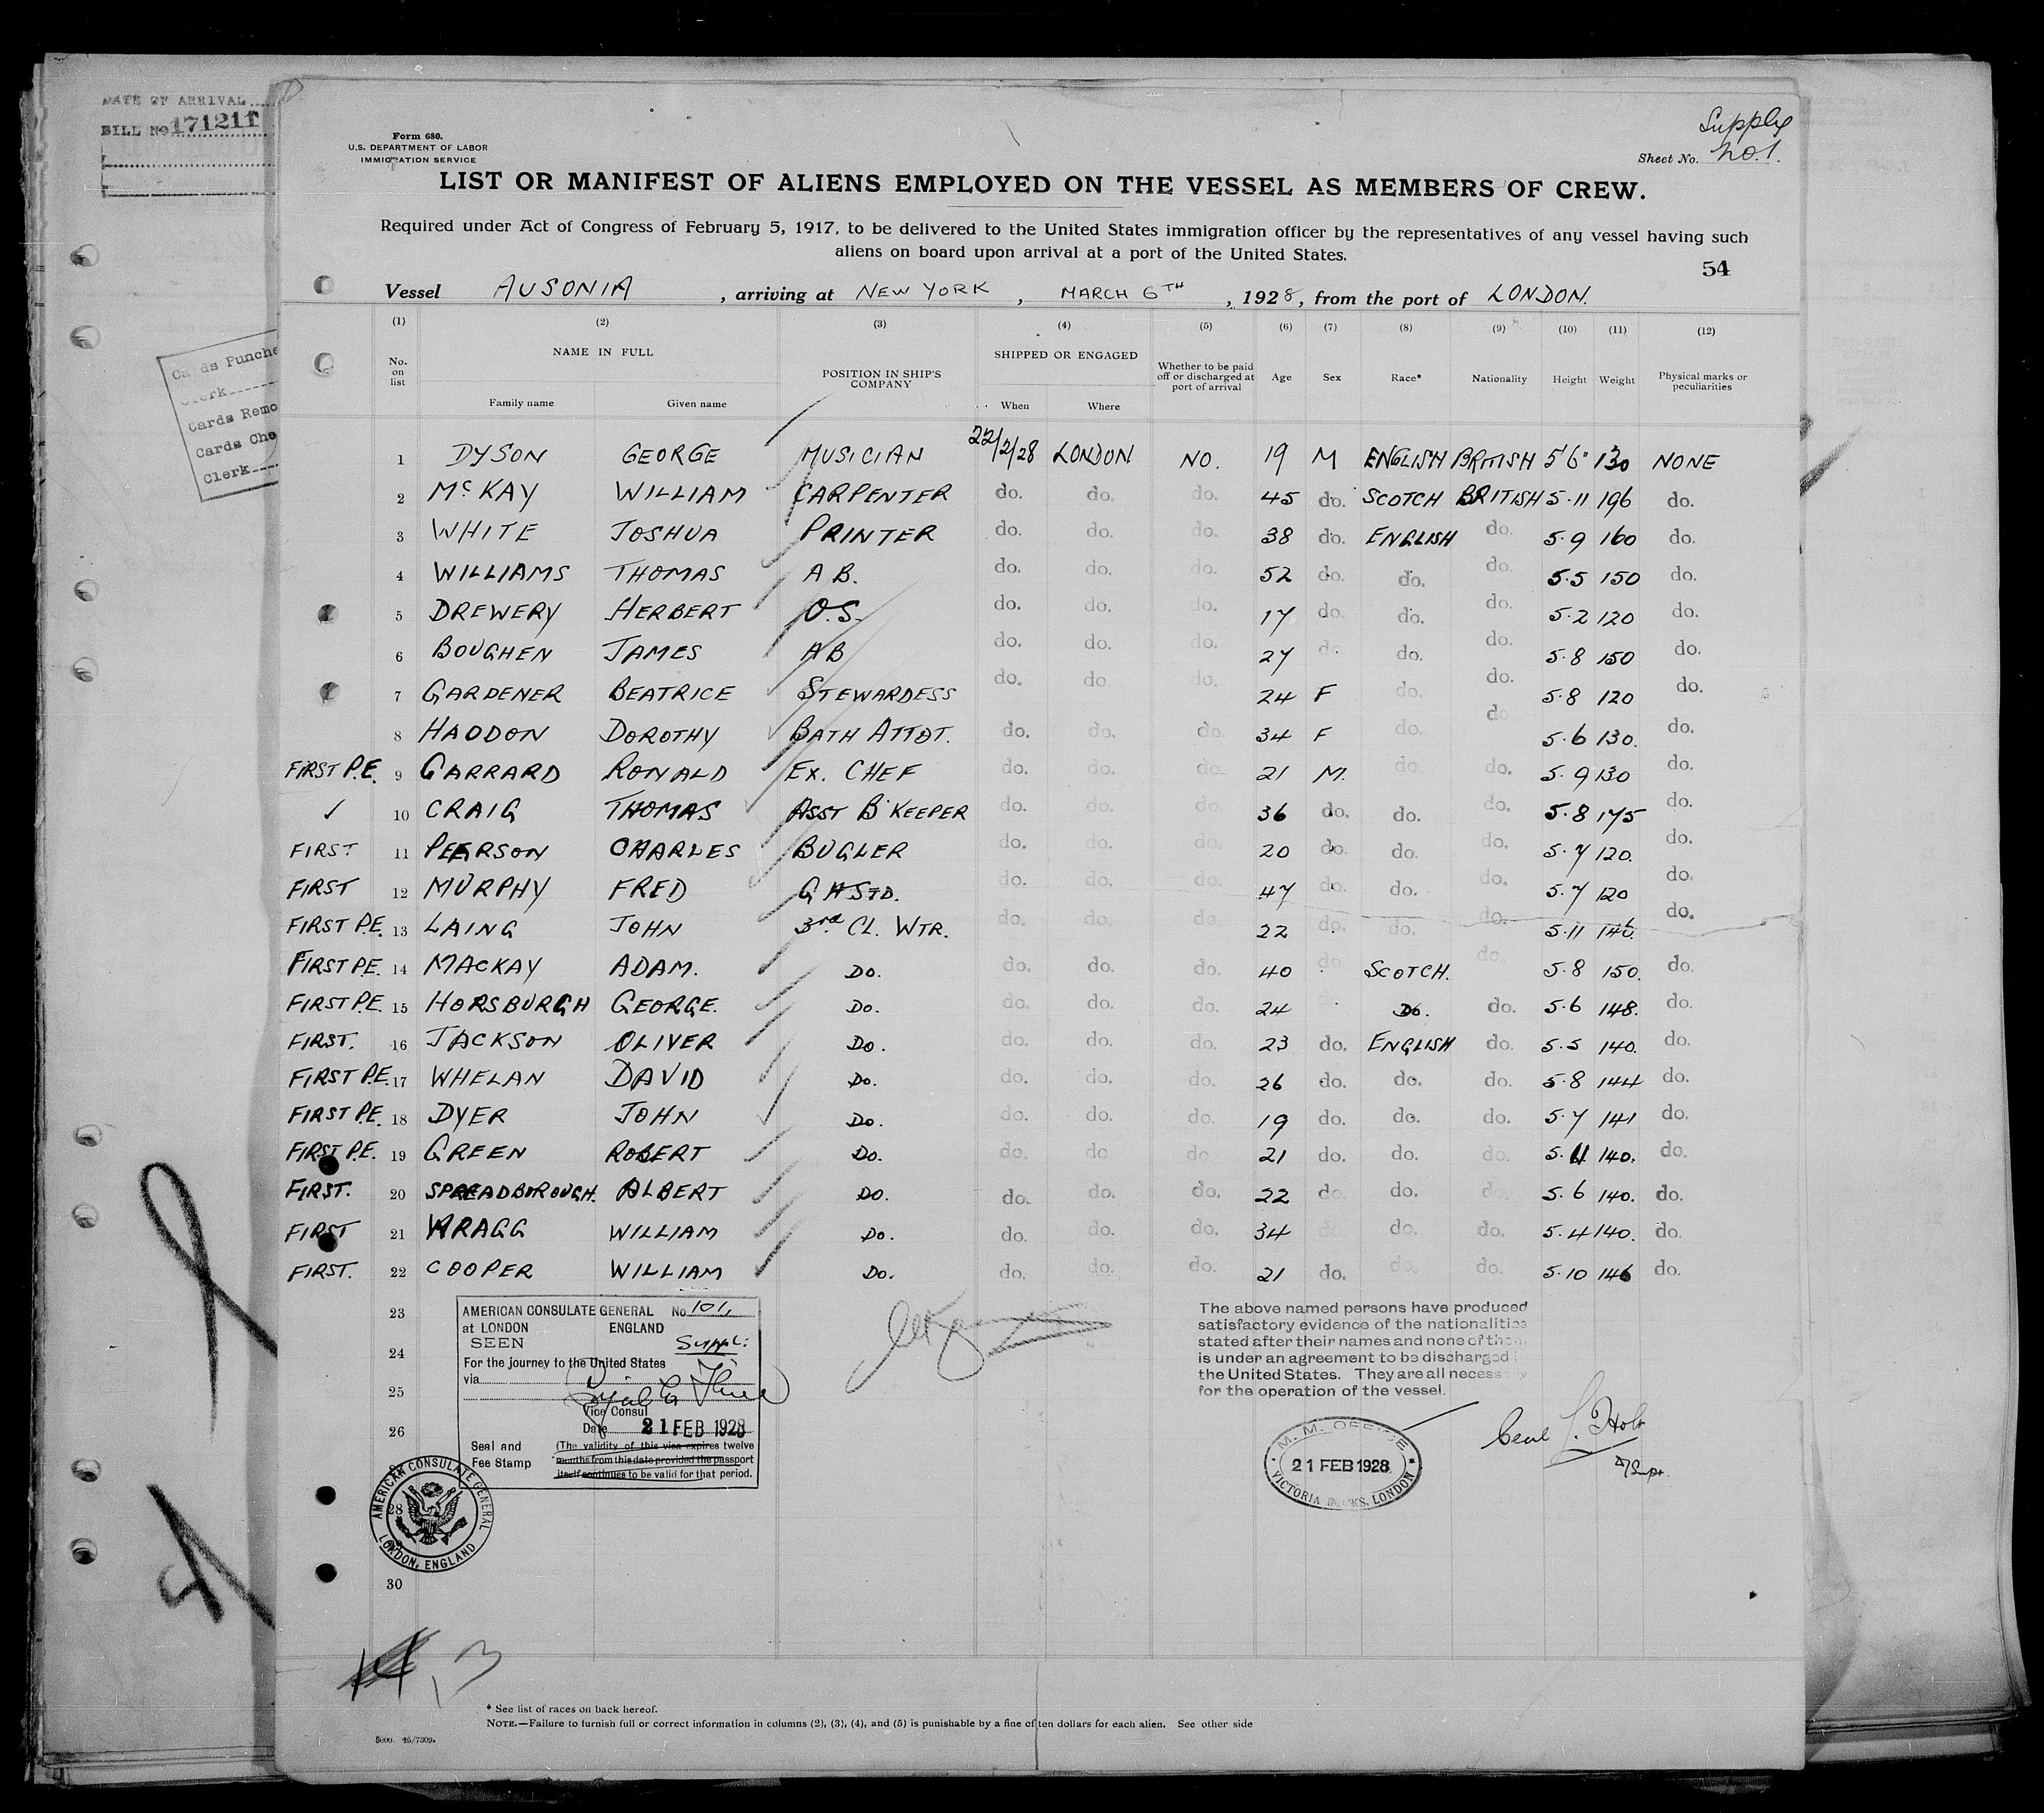 DATE OF ARRIVAL
BILL No 171211
Supply
Sheet No. No. 1.
Form 680.
U.S. DEPARTMENT OF LABOR
IMMIGRATION SERVICE
LIST OR MANIFEST OF ALIENS EMPLOYED ON THE VESSEL AS MEMBERS OF CREW.
Required under Act of Congress of February 5, 1917, to be delivered to the United States immigration officer by the representatives of any vessel having such
aliens on board upon arrival at a port of the United States.
54
Vessel AUSONIA, arriving at NEW YORK, MARCH 6TH, 1928, from the port of LONDON.
Cards Punche
Clerk
Cards Remo
Cards Che
Clerk
(1) (2) (3) (4) (5) (6) (7) (8) (9) (10) (11) (12)
No. on list NAME IN FULL Family name Given name POSITION IN SHIP'S COMPANY SHIPPED OR ENGAGED When Where Whether to be paid off or discharged at port of arrival Age Sex Race* Nationality Height Weight Physical marks or peculiarities
1 DYSON GEORGE MUSICIAN 22/2/28 LONDON NO. 19 M ENGLISH BRITISH 5'6" 130 NONE
2 McKAY WILLIAM CARPENTER do. do. do. 45 do. SCOTCH BRITISH 5.11 196 do.
3 WHITE JOSHUA PRINTER do. do. do. 38 do. ENGLISH do. 5.9 160 do.
4 WILLIAMS THOMAS A B. do. do. do. 52 do. do. do. 5.5 150 do.
5 DREWERY HERBERT O.S. do. do. do. 17 do. do. do. 5.2 120 do.
6 BOUGHEN JAMES AB do. do. do. 27 do. do. do. 5.8 150 do.
7 GARDENER BEATRICE STEWARDESS do. do do. 24 F do. do. 5.8 120 do.
8 HADDON DOROTHY BATH ATTDT. do. do. do. 34 F do. do 5.6 130. do.
FIRST P.E. 9 GARRARD RONALD EX. CHEF do. do. do. 21 M. do. do. 5.9 130 do.
✓ 10 CRAIG THOMAS ASST B'KEEPER do. do. do. 36 do. do. do. 5.8 175 do.
FIRST 11 PEARSON CHARLES BUGLER do. do. do. 20 do. do. do. 5.7 120. do.
FIRST 12 MURPHY FRED G H STD. do. do. do. 47 do. do. do. 5.7 120 do.
FIRST P.E. 13 LAING JOHN 3rd CL. WTR. do. do. do. 22 do. do. do. 5.11 140. do.
FIRST P.E. 14 MACKAY ADAM. DO. do. do. do. 40 do SCOTCH. do. 5.8 150. do.
FIRST P.E. 15 HORSBURGH GEORGE. DO. do. do. do. 24 DO. do. 5.6 148. do.
FIRST. 16 JACKSON OLIVER DO. do. do. do. 23 do. ENGLISH do. 5.5 140. do.
FIRST P.E. 17 WHELAN DAVID DO. do. do. do. 26 do. do. do. 5.8 144 do.
FIRST P.E. 18 DYER JOHN DO. do. do. do. 19 do. do. do. 5.7 141 do.
FIRST P.E. 19 GREEN ROBERT DO. do. do. do 21 do. do. do. 5.11 140. do.
FIRST. 20 SPREADBOROUGH. ALBERT DO. do. do. do. 22 do. do. do. 5.6 140. do.
FIRST 21 WRAGG WILLIAM DO. do. do. do. 34 do. do. do. 5.4 140. do.
FIRST. 22 COOPER WILLIAM DO. do. do. do. 21 do. do. do. 5.10 146 do.
23
24
25
26
28
30
AMERICAN CONSULATE GENERAL No 101,
at LONDON ENGLAND
SEEN Suppl:
For the journey to the United States
via
Vice Consul
Date 21 FEB 1928
Seal and Fee Stamp
(The validity of this visa expires twelve
months from this date provided the passport
itself continues to be valid for that period.
AMERICAN CONSULATE GENERAL
LONDON, ENGLAND
The above named persons have produced
satisfactory evidence of the nationalities
stated after their names and none of them
is under an agreement to be discharged
the United States. They are all necessary
for the operation of the vessel.
M. M. OFFICE
21 FEB 1928
VICTORIA DOCKS, LONDON
14 13
* See list of races on back hereof.
NOTE.—Failure to furnish full or correct information in columns (2), (3), (4), and (5) is punishable by a fine of ten dollars for each alien. See other side